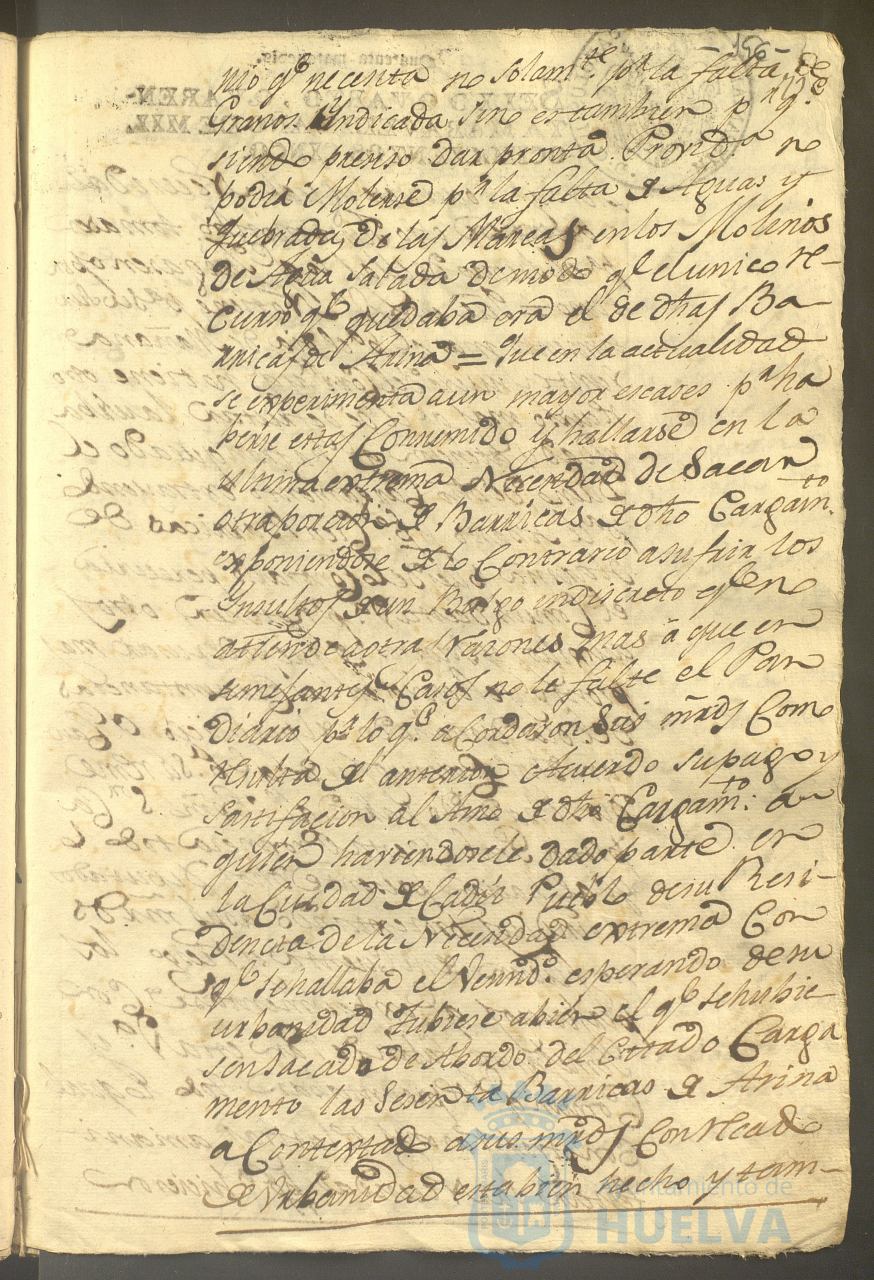 156
mo qe necenta no solamte pr la falta de
Granos yndicada sino es tambien pr qe
siendo preciso dar pronta Provida no
podia Molerse pr la falta de Aguas y
quebradas de las Mareas en los Molinos
de Agua Salada de modo qe el unico re-
curso qe quedaba era el de dhas Ba-
rricas de Arina = Que en la actualidad
se experimenta aun mayor escases pr ha
verse estas Consumido y hallarse en la
ultima extrema Necesidad de Sacar
otra porcion de Barricas de dho Cargamto
exponiendose de lo Contrario a sufrir los
Insultos de un Bulgo indiscreto qe no
atiende a otras razones mas a que en
semejantes Casos no le falte el Pan
Diario pr lo qe acordaron sus mrds Como
resulta del anterior Acuerdo su pago y
satisfacion al Amo de dho Cargamto a
quien haviendosele dado parte en
la Ciudad de Cadiz Pueblo de su Resi-
dencia de la Necesidad extrema Con
qe se hallaba el Vecindo esperando de su
urbanidad tubiese a bien el qe se hubie
sen sacado de Abordo del Citado Carga
mento las Sesenta Barricas de Arina
a Contextado a sus mrds Con
de Urbanidad esta bien hecho y tam-
Ayuntamiento de
HUELVA